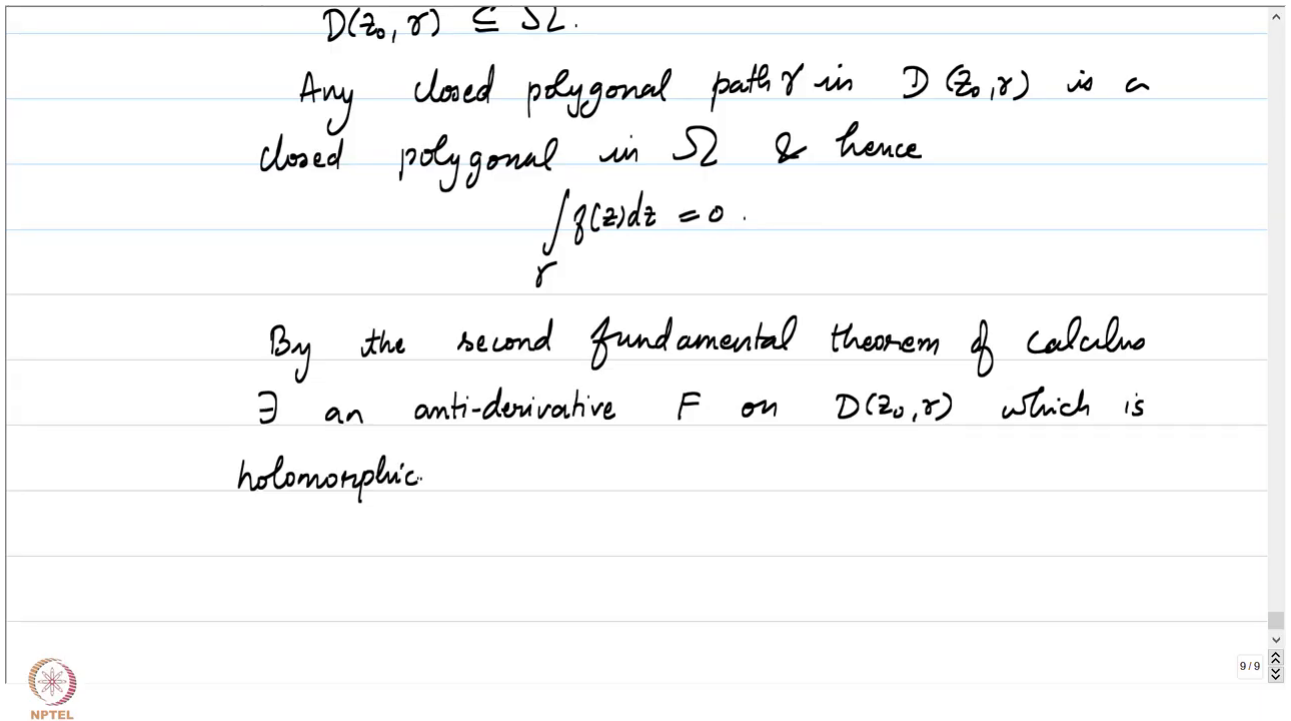 D(z₀, r) ⊆ Ω.
Any closed polygonal path γ in D(z₀, r) is a
closed polygonal in Ω & hence
∫ f(z)dz = 0.
γ
By the second fundamental theorem of calculus
∃ an anti-derivative F on D(z₀, r) which is
holomorphic.
9 / 9
NPTEL